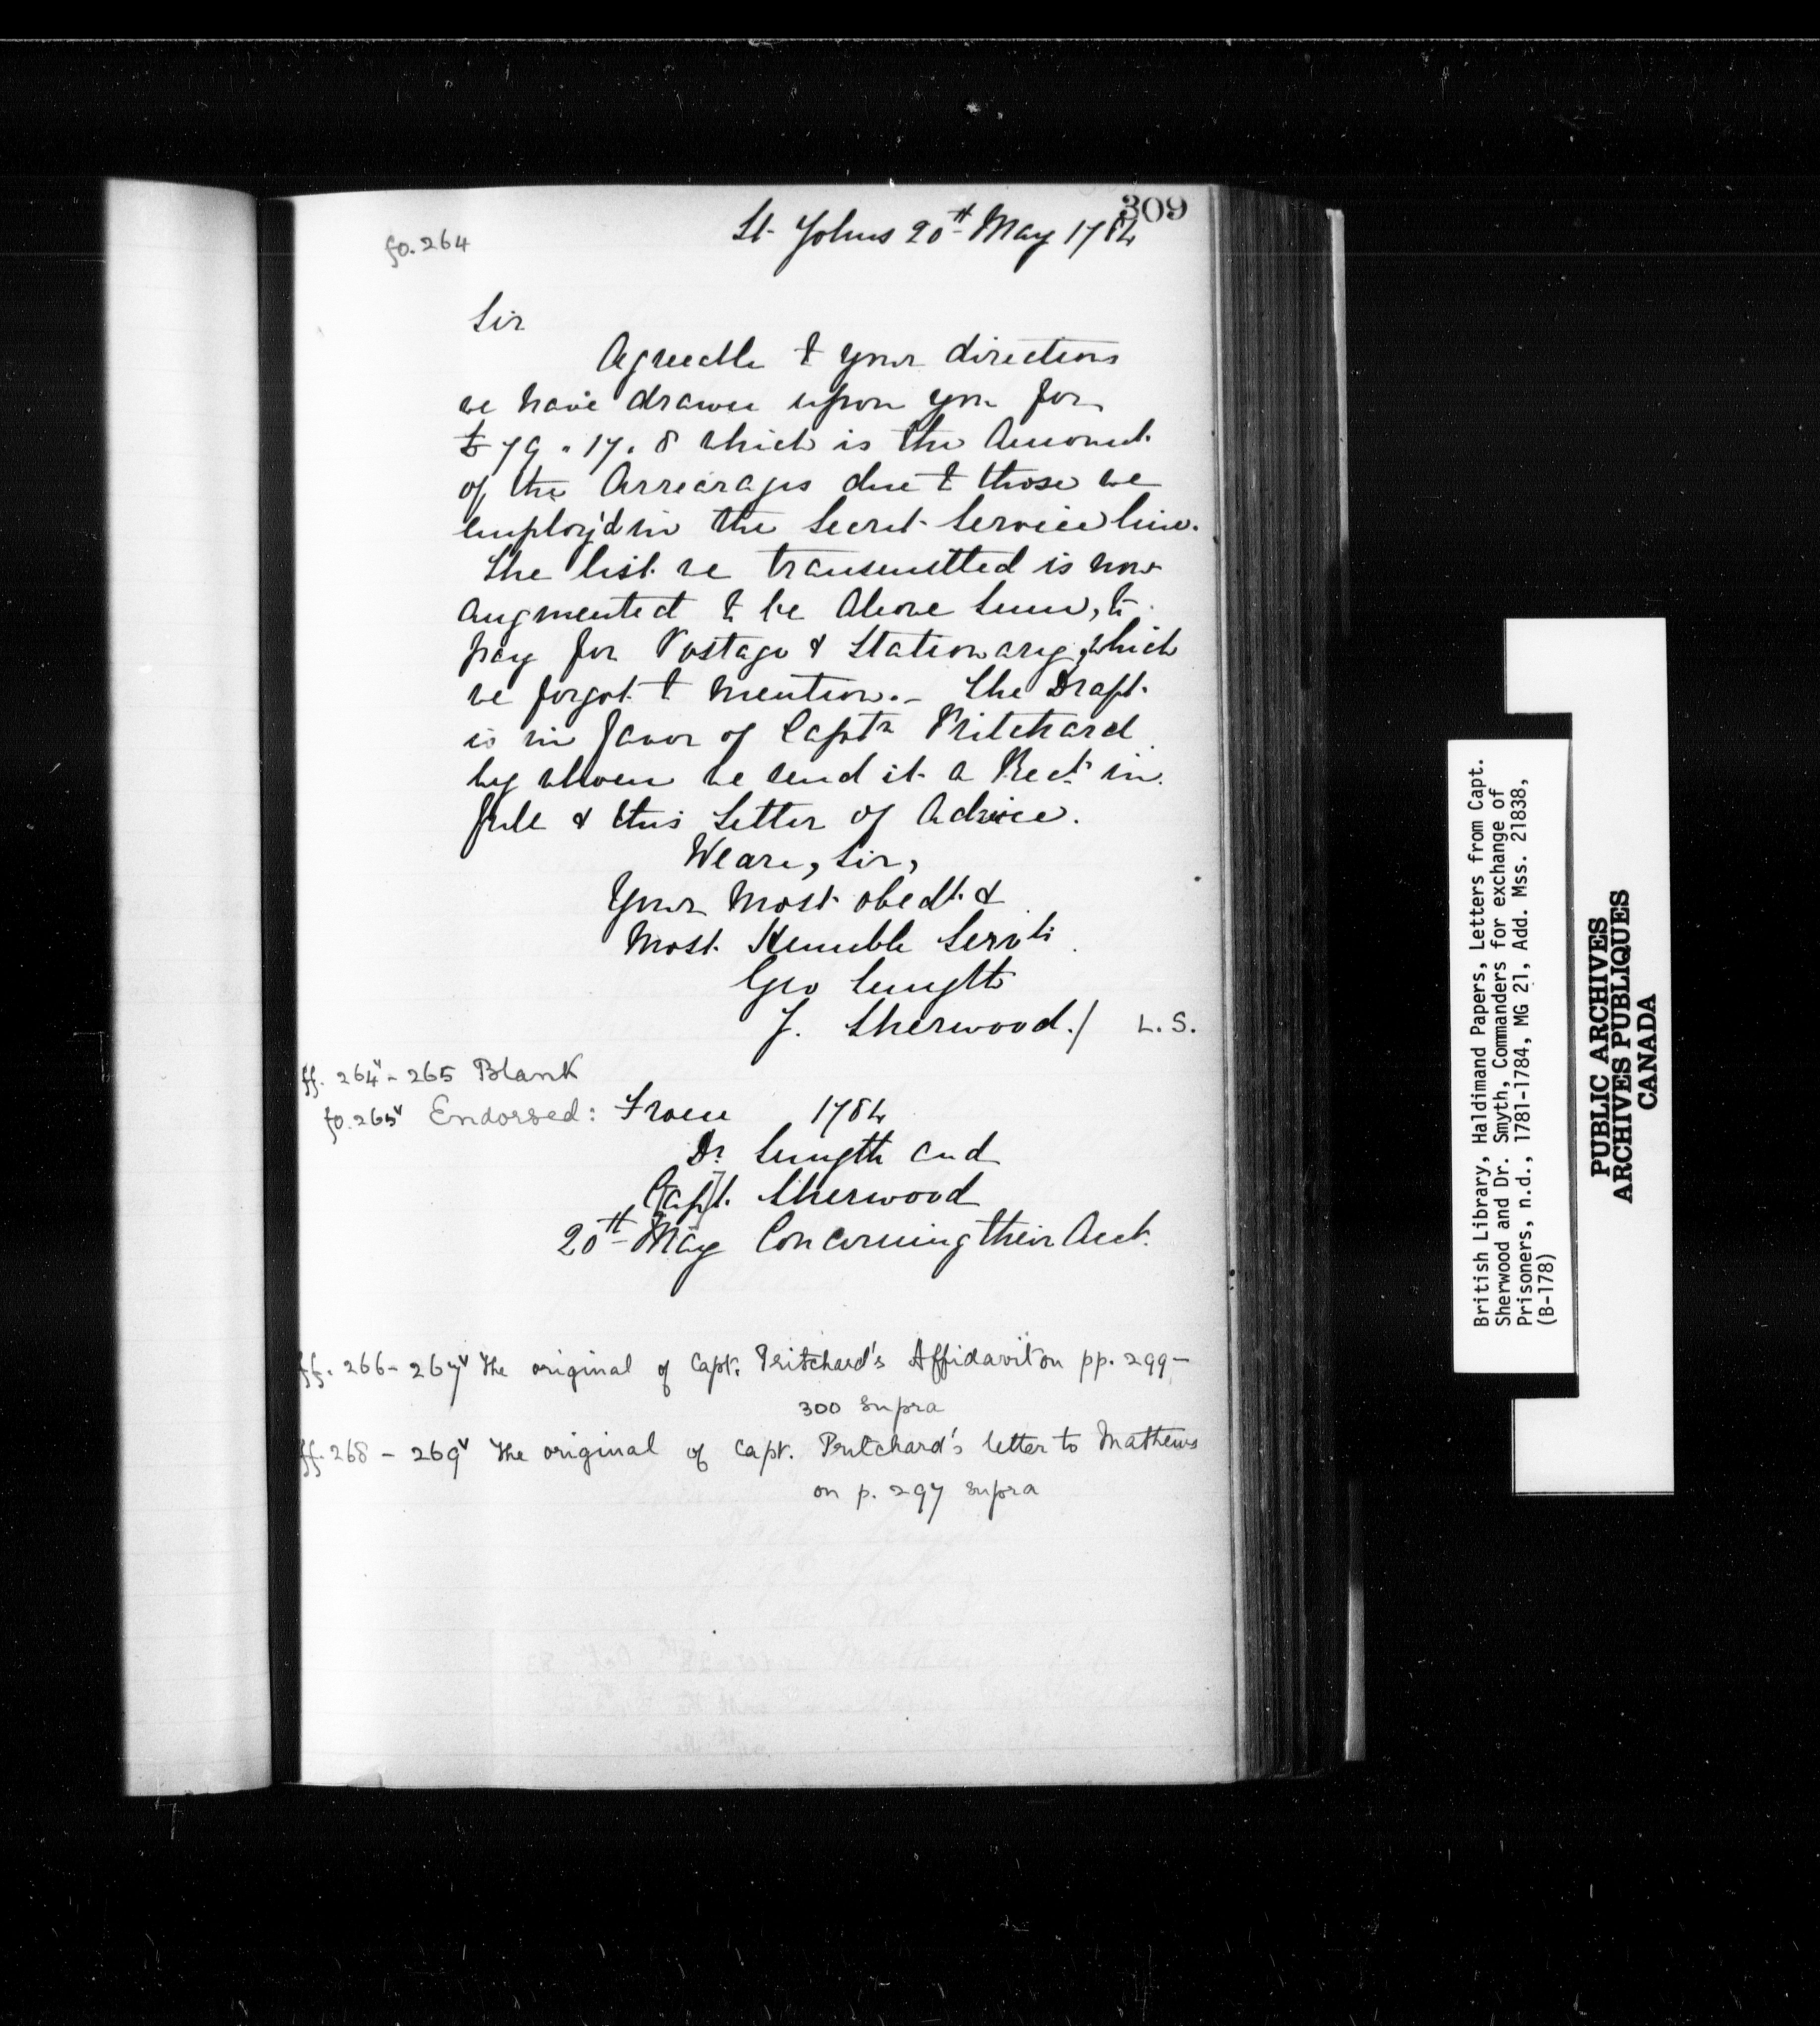 309
fo. 264
St Johns 20th May 1784
Sir
Agreeable to your directions
we have drawn upon you for
£79.17.8 which is the Amount
of the Arrearages due to those we
employ'd in the Secret Service line.
The list we transmitted is now
augmented to be above Sum, to
pay for Postage & Stationary, which
we forgot to mention. - The Draft
is in favor of Captn Pritchard
by whom we send it a Rect in
full & this Letter of Advice.
We are, Sir,
Your most obedt &
most Humble Servts
Geo Smyth
J. Sherwood./ L.S.
ff. 264v - 265 Blank
fo. 265v Endorsed: From 1784
Dr Smyth and
Capt. Sherwood
20th May Concerning their Acct.
ff. 266 - 267v The original of Capt. Pritchard's Affidavit on pp. 299 -
300 supra
ff. 268 - 269v The original of Capt. Pritchard's letter to Mathews
on p. 297 supra
British Library, Haldimand Papers, Letters from Capt.
Sherwood and Dr. Smyth, Commanders for exchange of
Prisoners, n.d., 1781-1784, MG 21, Add. Mss. 21838,
(B-178)
PUBLIC ARCHIVES
ARCHIVES PUBLIQUES
CANADA